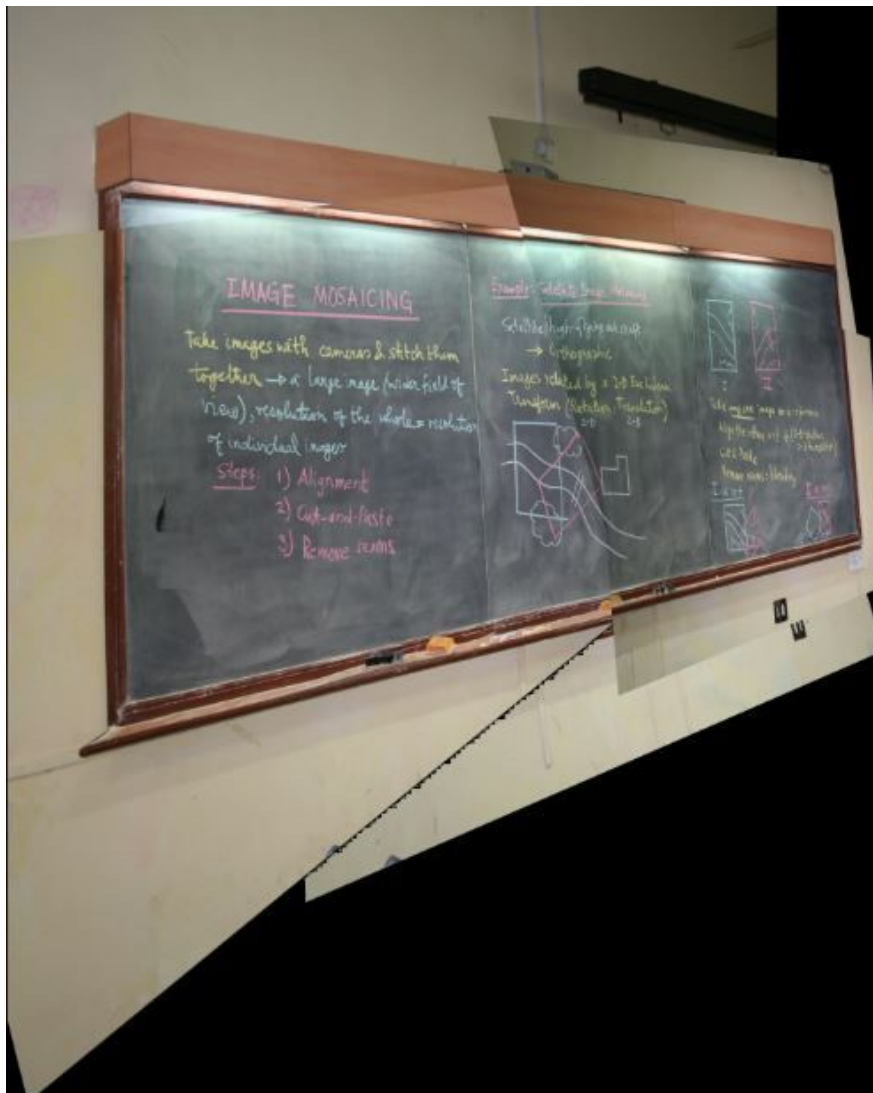 IMAGE MOSAICING
Take images with cameras & stitch them
together → a large image (wider field of
view), resolution of the whole = resolution
of individual images
Steps: 1) Alignment
2) Cut-and-Paste
3) Remove seams
Example: Satellite Image Mosaicing
Satellite/high-flying aircraft
→ Orthographic
Images related by a 2-D Euclidean
Transform (Rotation, Translation)
2-D 2-D
I II
Take any one image as a reference
Align the other
Cut & Paste
Remove seams: blending